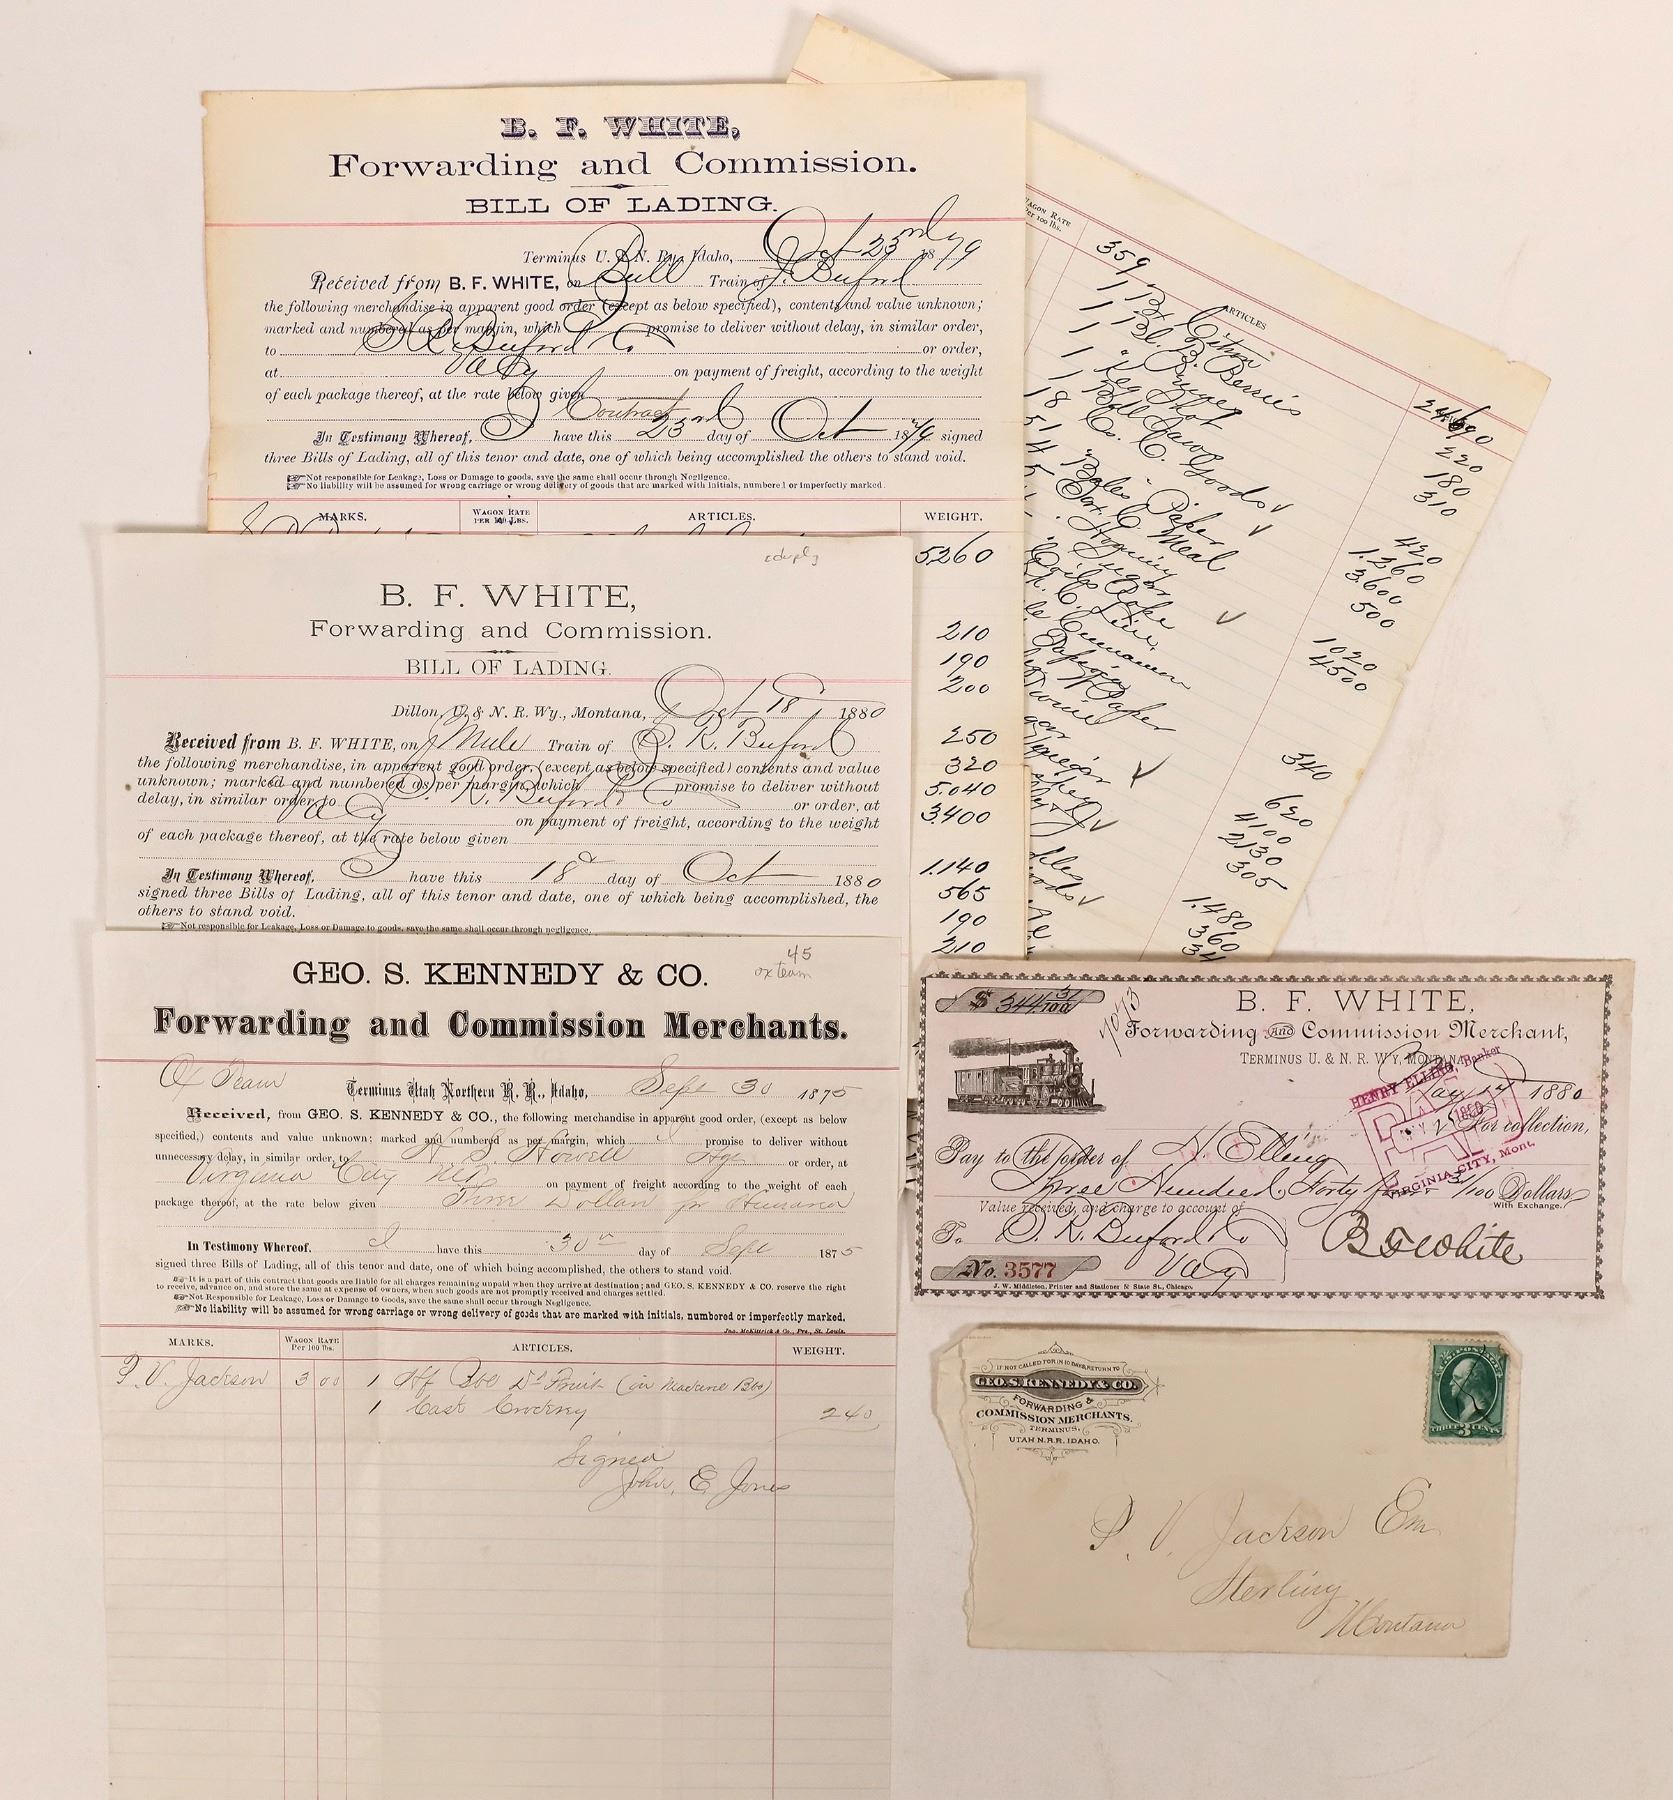 B. F. WHITE,
Forwarding and Commission.
BILL OF LADING.
Terminus U. & N. Ry. Idaho, Oct 23rd 1879
Received from B. F. WHITE, on Bull Train of Buford
the following merchandise in apparent good order (except as below specified), contents and value unknown;
marked and numbered as per margin, which promise to deliver without delay, in similar order,
to S. R. Buford & Co or order,
at Va Cy on payment of freight, according to the weight
of each package thereof, at the rate below given
Contract
In Testimony Whereof, I have this 23rd day of Oct 1879 signed
three Bills of Lading, all of this tenor and date, one of which being accomplished the others to stand void.
Not responsible for Leakage, Loss or Damage to goods, save the same shall occur through Negligence.
No liability will be assumed for wrong carriage or wrong delivery of goods that are marked with initials, numbered or imperfectly marked.
MARKS. WAGON RATE PER 100 LBS. ARTICLES. WEIGHT.
5260
210
190
200
250
320
5.040
3.400
1.140
565
190
210
WAGON RATE
Per 100 lbs.
ARTICLES
359
1 Bx Citron
1 Bbl. B. Berries
1 " Ginger
1 Keg Shot
1 Roll
18 Cs. C. Goods
51 " Paper
4 Bales
5 C. Meal
Hominy
Sugar
Coils Rope
Cinnamon
Paper
24690
220
180
310
420
1.260
3.600
500
1020
4500
340
620
4100
2130
305
1.480
360
34
B. F. WHITE,
Forwarding and Commission.
BILL OF LADING.
Dillon, U. & N. R. Wy., Montana, Oct 18 1880
Received from B. F. WHITE, on Mule Train of S. R. Buford
the following merchandise, in apparent good order, (except as below specified) contents and value
unknown; marked and numbered as per margin, which I promise to deliver without
delay, in similar order to S. R. Buford & Co or order, at
Va Cy on payment of freight, according to the weight
of each package thereof, at the rate below given
In Testimony Whereof, I have this 18th day of Oct 1880
signed three Bills of Lading, all of this tenor and date, one of which being accomplished, the
others to stand void.
Not responsible for Leakage, Loss or Damage to goods, save the same shall occur through negligence.
45
ox team
GEO. S. KENNEDY & CO.
Forwarding and Commission Merchants.
Ox Team Terminus Utah Northern R. R., Idaho, Sept 30 1875
Received, from GEO. S. KENNEDY & CO., the following merchandise in apparent good order, (except as below
specified,) contents and value unknown; marked and numbered as per margin, which I promise to deliver without
unnecessary delay, in similar order, to H S. Howell Agt or order, at
Virginia City on payment of freight according to the weight of each
package thereof, at the rate below given Three Dollars pr Hundred
In Testimony Whereof, I have this 30th day of Sept 1875
signed three Bills of Lading, all of this tenor and date, one of which being accomplished, the others to stand void.
It is a part of this contract that goods are liable for all charges remaining unpaid when they arrive at destination; and GEO. S. KENNEDY & CO. reserve the right
to receive, advance on, and store the same at expense of owners, when such goods are not promptly received and charges settled.
Not Responsible for Leakage, Loss or Damage to Goods, save the same shall occur through Negligence.
No liability will be assumed for wrong carriage or wrong delivery of goods that are marked with initials, numbered or imperfectly marked.
Jno. McKittrick & Co., Prs., St. Louis.
MARKS. WAGON RATE Per 100 lbs. ARTICLES. WEIGHT.
P. V. Jackson 3 00 1 Hf Bbl Dd Fruit (in Box)
1 Cask Crockery 240
Signed
John. E. Jones
$ 344 31/100
7073
B. F. WHITE,
Forwarding and Commission Merchant,
TERMINUS U. & N. R. W'Y, MONTANA,
May 14 1880
HENRY ELLING, Banker
PAID
1880
VIRGINIA CITY, Mont.
For collection,
Pay to the order of H. Elling
Three Hundred, Forty four 31/100 Dollars
Value received, and charge to account of With Exchange.
To S. R. Buford & Co B F White
Va Cy
No. 3577
J. W. Middleton, Printer and Stationer 55 State St., Chicago.
IF NOT CALLED FOR IN 10 DAYS, RETURN TO
GEO. S. KENNEDY & CO.
FORWARDING &
COMMISSION MERCHANTS.
TERMINUS,
UTAH N.R.R. IDAHO.
U.S. POSTAGE
THREE 3 CENTS
P. V. Jackson
Sterling
Montana